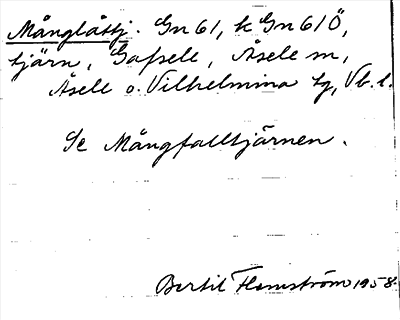 Månglåttj. Gn 61, k Gn 61Ö,
tjärn, Gafsele, Åsele m,
Åsele o. Vilhelmina tg, Vb. l.
Se Mångfalltjärnen.
Bertil Flemström 1958.